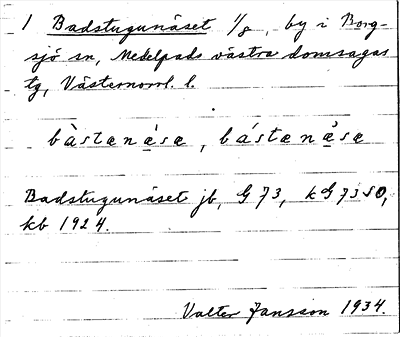 1 Badstugunäset 1/8, by i Borg-
sjö sn, Medelpads västra domsagas
tg, Västernorrl. l.
bàstænæ̀sæ, bástænæ̀sæ
Badstugunäset jb, G 73, kG 73 SO,
kb 1924.
Valter Jansson 1934.